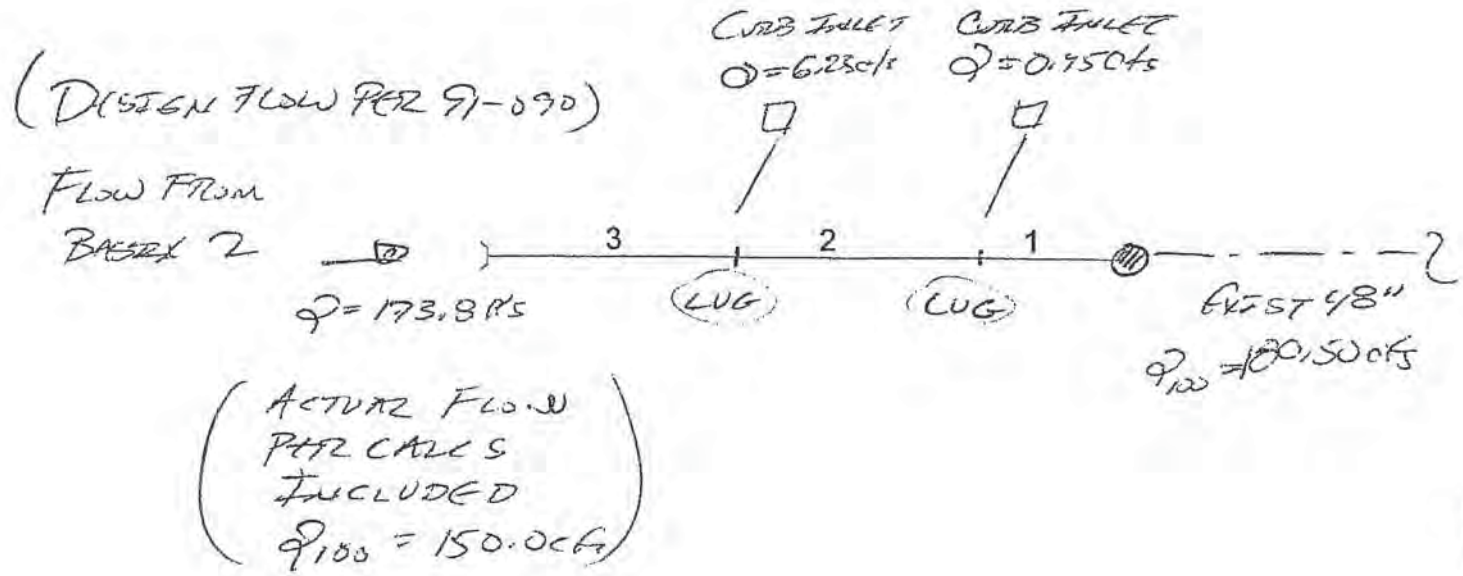 CURB INLET
Q=6.23cfs
CURB INLET
Q=0.45cfs
(DESIGN FLOW PER 91-090)
FLOW FROM
2
Q=173.8
3
2
1
LUG
LUG
EXIST 48"
Q100=180.50cfs
(ACTUAL FLOW
PER CALCS
INCLUDED
Q100 = 150.0cfs)